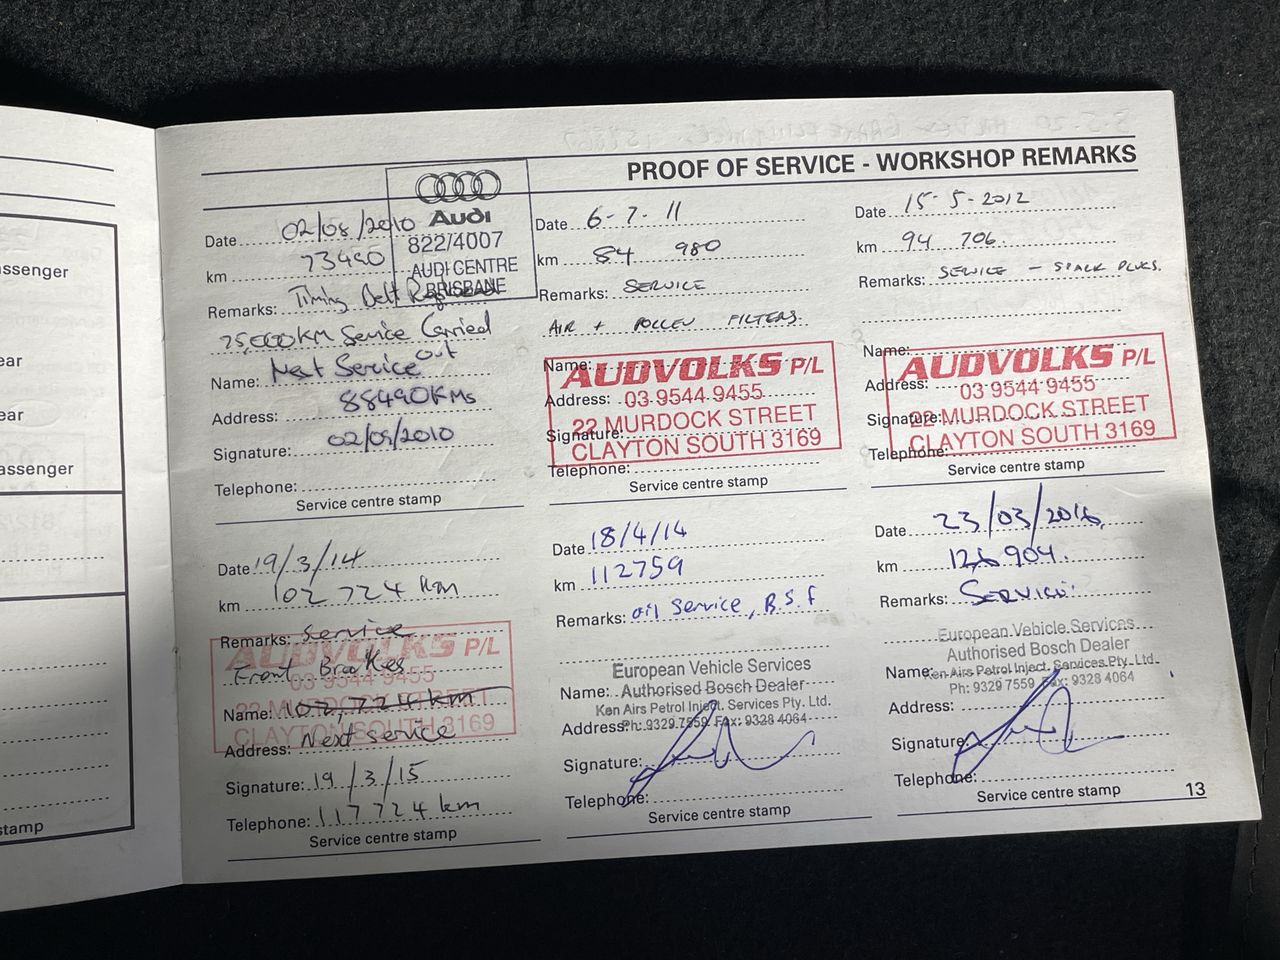 PROOF OF SERVICE - WORKSHOP REMARKS
assenger
ear
ear
assenger
stamp
Date 02/08/2010
km 73490
Remarks: Timing Belt
75,000KM Service Carried
out
Name: Next Service
Address: 88490KMs
Signature: 02/08/2010
Telephone:
Service centre stamp
Audi
822/4007
AUDI CENTRE
BRISBANE
Date 6-7-11
km 84 980
Remarks: SERVICE
AIR + POLLEN FILTERS.
Name:
Address:
Signature:
Telephone:
AUDVOLKS P/L
03 9544 9455
22 MURDOCK STREET
CLAYTON SOUTH 3169
Service centre stamp
Date 15-5-2012
km 94 706
Remarks: SERVICE - SPARK PLUGS.
Name:
Address:
Signature:
Telephone:
AUDVOLKS P/L
03 9544 9455
22 MURDOCK STREET
CLAYTON SOUTH 3169
Service centre stamp
Date 19/3/14
km 102 724 km
Remarks: Service
Front Brakes
Name: 102,724km
Address: Next service
Signature: 19/3/15
Telephone: 117724 km
AUDVOLKS P/L
03 9544 9455
22 MURDOCK STREET
CLAYTON SOUTH 3169
Service centre stamp
Date 18/4/14
km 112759
Remarks: oil service, B.S.f
European Vehicle Services
Name: Authorised Bosch Dealer
Ken Airs Petrol Inject. Services Pty. Ltd.
Address: Ph: 9329 7559 Fax: 9328 4064
Signature:
Telephone:
Service centre stamp
Date 23/03/2016
km 126904.
Remarks: Service.
European Vehicle Services
Authorised Bosch Dealer
Name: Ken Airs Petrol Inject. Services Pty. Ltd.
Ph: 9329 7559 Fax: 9328 4064
Address:
Signature:
Telephone:
Service centre stamp
13